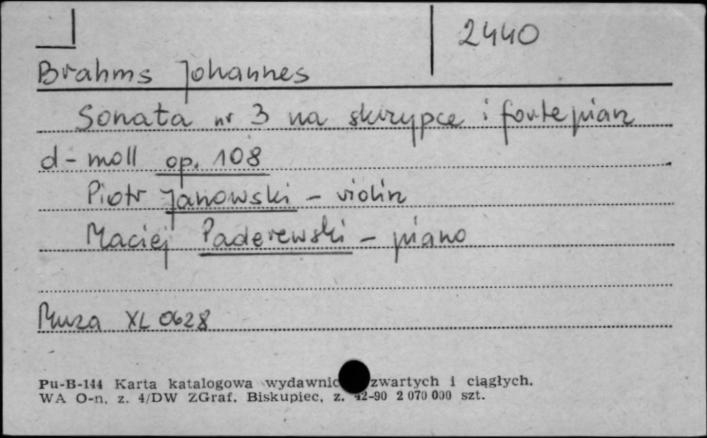 2440
Brahms Johannes
Sonata nr 3 na skrzypce i fortepian
d-moll op. 108
Piotr Janowski - violin
Maciej Paderewski - piano
Muza XL 0628
Pu-B-144 Karta katalogowa wydawnic zwartych i ciągłych.
WA O-n. z. 4/DW ZGraf. Biskupiec, z. 42-90 2 070 000 szt.